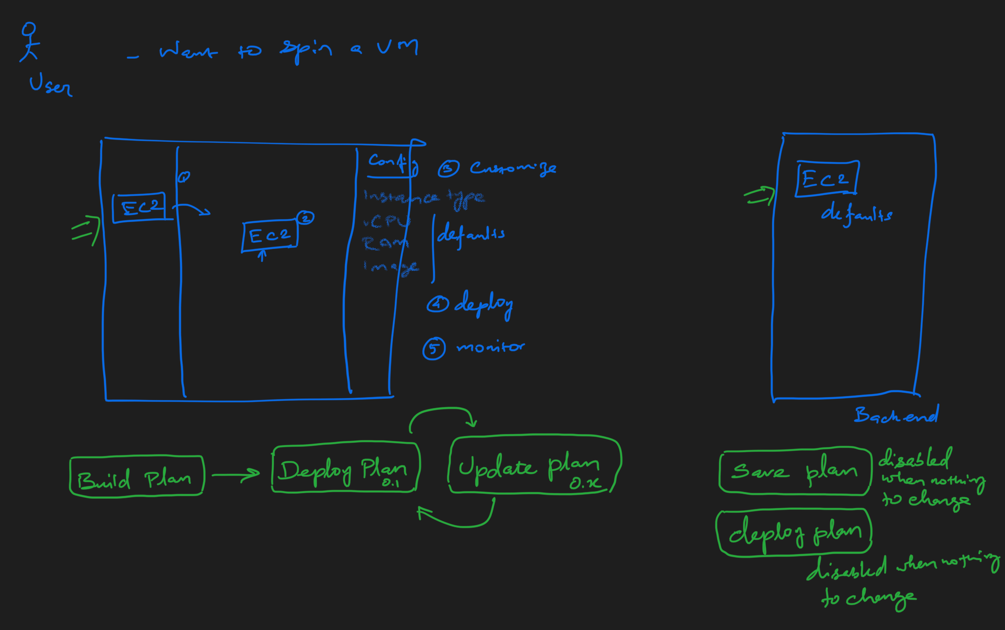 - Want to spin a VM
User
Config
③ Customize
EC2
Instance type
vCPU
defaults
Ram
Image
EC2
②
④ deploy
⑤ monitor
EC2
defaults
Backend
Build Plan
Deploy Plan
0.1
Update plan
0.x
Save plan
disabled
when nothing
to change
deploy plan
disabled when nothing
to change